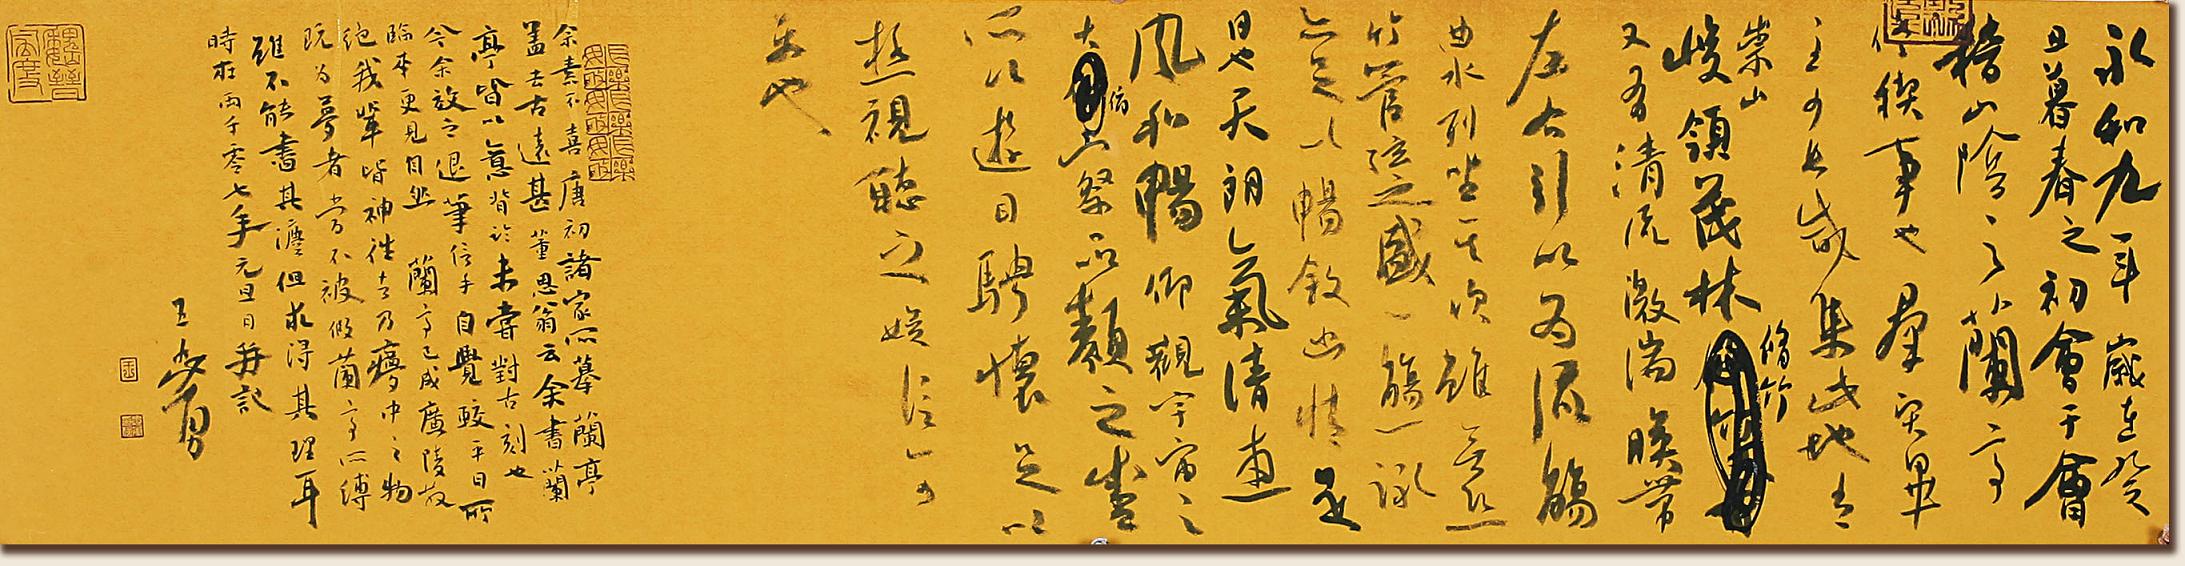 永和九年歲在癸
丑暮春之初會于會
稽山陰之蘭亭
稧事也群賢畢
至少長咸集此地有
崇山
峻領茂林脩竹
又有清流激湍暎帶
左右引以為流觴
曲水列坐其次雖無絲
竹管弦之盛一觴一詠
亦足以暢敘幽情是
日也天朗氣清惠
風和暢仰觀宇宙之
大俯察品類之盛
所以遊目騁懷足以
極視聽之娛信可
樂也
余素不喜唐初諸家所摹蘭亭
蓋去古遠甚董思翁云余書蘭
亭皆以意背臨未嘗對古刻也
今余放之退筆信手自覺較平日所
臨本更見自然蘭亭已成廣陵散
絕我輩皆神往者乃夢中之物
既為夢者當不被假蘭亭所縛
雖不能書其瀍但求得其理耳
時在兩千零七年元旦日并記
王勇